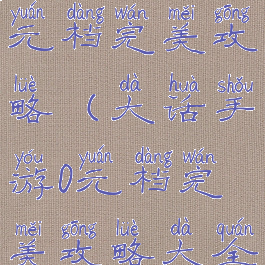 yuán dàng wán měi gōng
元档完美攻
lüè dà huà shǒu
略(大话手
yóu yuán dàng wán
游0元档完
měi gōng lüè dà quán
美攻略大全